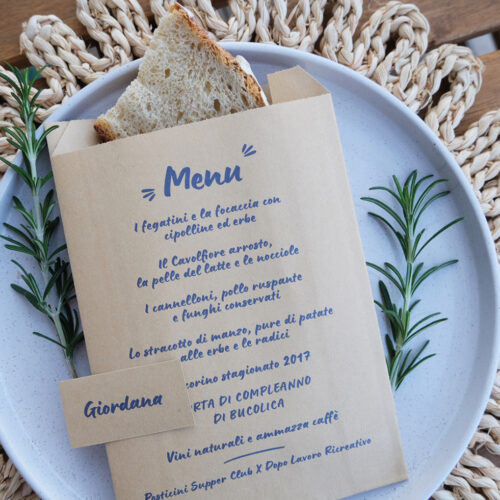 Menu
I fegatini e la focaccia con
cipolline ed erbe
Il Cavolfiore arrosto,
la pelle del latte e le nocciole
I cannelloni, pollo ruspante
e funghi conservati
Lo stracotto di manzo, pure di patate
alle erbe e le radici
corino stagionato 2017
Giordana
RTA DI COMPLEANNO
DI BUCOLICA
Vini naturali e ammazza caffè
Posticini Supper Club X Dopo Lavoro Ricreativo